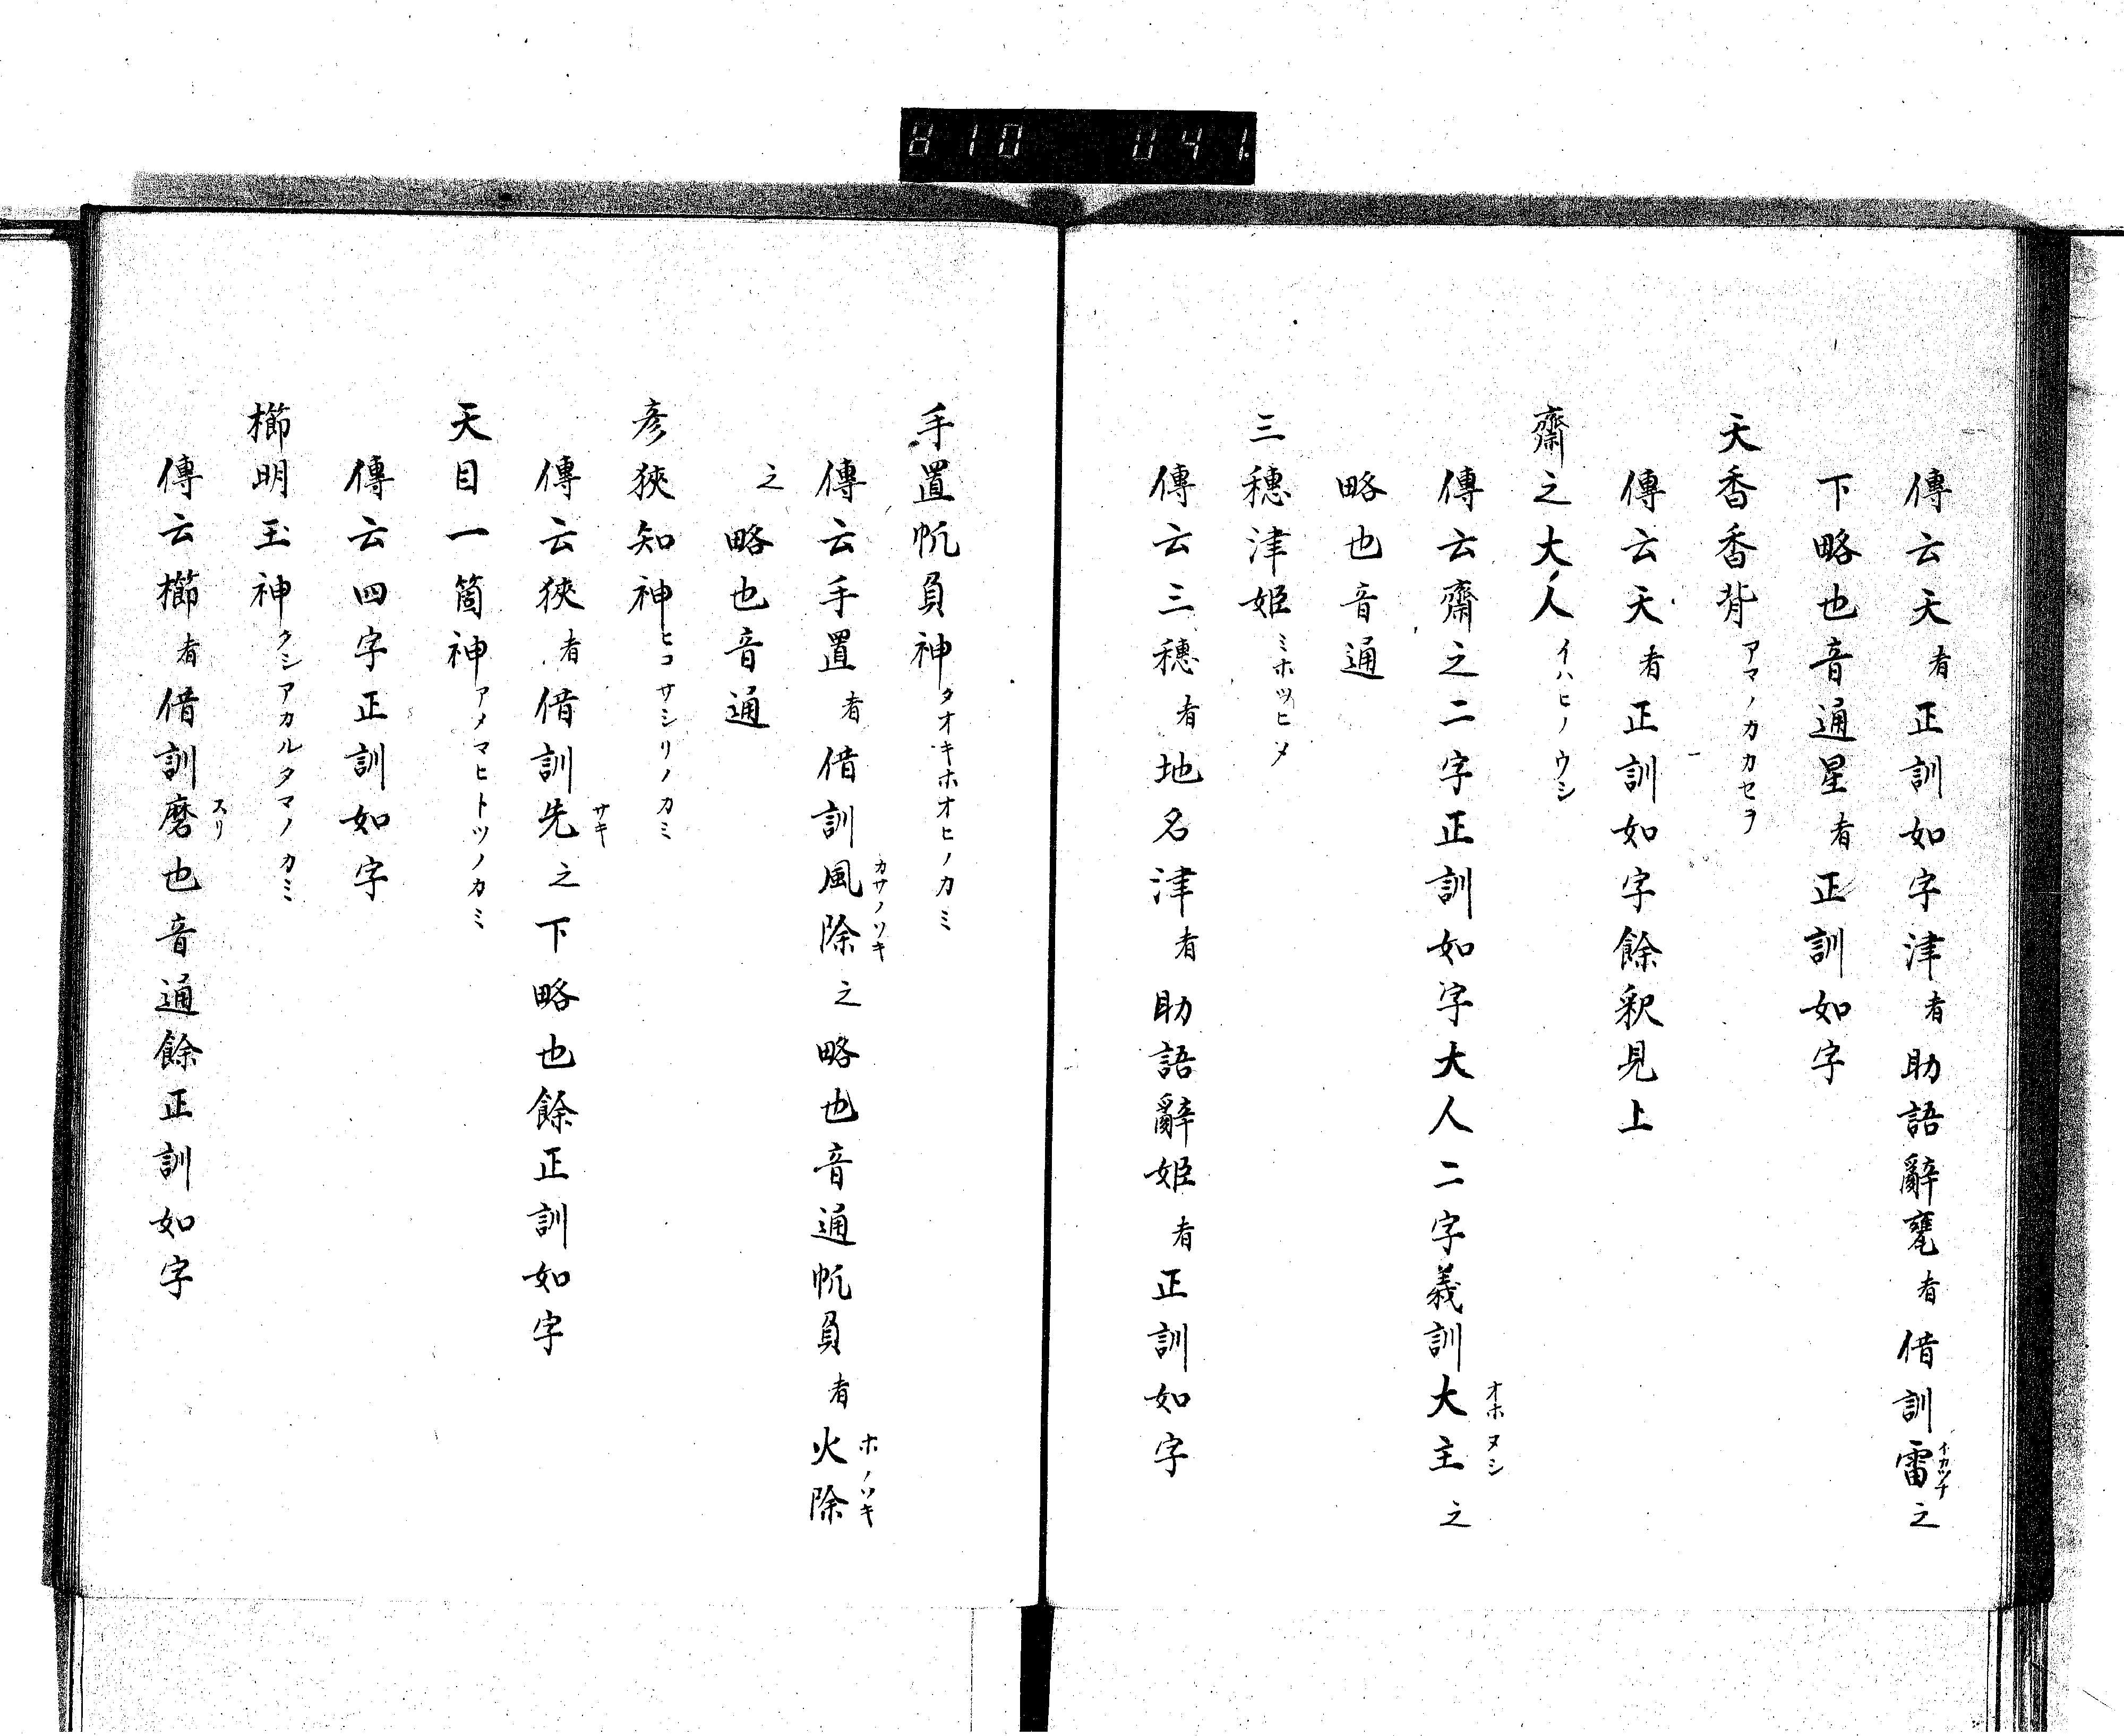 810 041.
傳云天者正訓如字津者助語辭甕者借訓雷イカツチ之
下略也音通星者正訓如字
天香香背アマノカカセヲ
傳云天者正訓如字餘釈見上
齋之大人イハヒノウシ
傳云齋之二字正訓如字大人二字義訓大主オホヌシ之
略也音通
三穗津姫ミホツヒメ
傳云三穗者地名津者助語辭姫者正訓如字
手置帆負神タオキホオヒノカミ
傳云手置者借訓風除カサノソキ之略也音通帆負者火除ホノソキ
之略也音通
彦狹知神ヒコサシリノカミ
傳云狹者借訓先サキ之下略也餘正訓如字
天目一箇神アメマヒトツノカミ
傳云四字正訓如字
櫛明玉神クシアカルタマノカミ
傳云櫛者借訓磨スリ也音通餘正訓如字